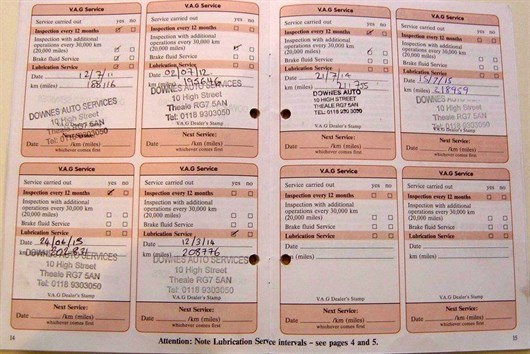 V.A.G Service
Service carried out yes no
Inspection every 12 months
Inspection with additional
operations every 30,000 km
(20,000 miles)
Brake fluid Service
Lubrication Service
Date 12/7/11
km (miles)
DOWNES AUTO SERVICES
10 High Street
Theale RG7 5AN
Tel: 0118 9303050
Next Service:
Date /km (miles)
whichever comes first
V.A.G Service
Service carried out yes no
Inspection every 12 months
Inspection with additional
operations every 30,000 km
(20,000 miles)
Brake fluid Service
Lubrication Service
Date 02/07/12
km (miles) 195646
DOWNES AUTO SERVICES
10 High Street
Theale RG7 5AN
Tel: 0118 9303050
Next Service:
Date /km (miles)
whichever comes first
V.A.G Service
Service carried out yes no
Inspection every 12 months
Inspection with additional
operations every 30,000 km
(20,000 miles)
Brake fluid Service
Lubrication Service
Date 21/7/14
km (miles) 211755
DOWNES AUTO
10 HIGH STREET
THEALE RG7 5AN
TEL: 0118 930 3050
V.A.G Dealer's Stamp
Next Service:
Date /km (miles)
whichever comes first
V.A.G Service
Service carried out yes no
Inspection every 12 months
Inspection with additional
operations every 30,000 km
(20,000 miles)
Brake fluid Service
Lubrication Service
Date 15/7/15
km (miles) 218959
DOWNES
V.A.G Dealer's Stamp
Next Service:
Date /km (miles)
whichever comes first
V.A.G Service
Service carried out yes no
Inspection every 12 months
Inspection with additional
operations every 30,000 km
(20,000 miles)
Brake fluid Service
Lubrication Service
Date
km (miles)
DOWNES AUTO SERVICES
10 High Street
Theale RG7 5AN
Tel: 0118 9303050
V.A.G Dealer's Stamp
Next Service:
Date /km (miles)
whichever comes first
V.A.G Service
Service carried out yes no
Inspection every 12 months
Inspection with additional
operations every 30,000 km
(20,000 miles)
Brake fluid Service
Lubrication Service
Date 12/3/14
km (miles) 208776
DOWNES AUTO SERVICES
10 High Street
Theale RG7 5AN
Tel: 0118 9303050
V.A.G Dealer's Stamp
Next Service:
Date /km (miles)
whichever comes first
V.A.G Service
Service carried out yes no
Inspection every 12 months
Inspection with additional
operations every 30,000 km
(20,000 miles)
Brake fluid Service
Lubrication Service
Date
km (miles)
V.A.G Dealer's Stamp
Next Service:
Date /km (miles)
whichever comes first
V.A.G Service
Service carried out yes no
Inspection every 12 months
Inspection with additional
operations every 30,000 km
(20,000 miles)
Brake fluid Service
Lubrication Service
Date
km (miles)
V.A.G Dealer's Stamp
Next Service:
Date /km (miles)
whichever comes first
14
Attention: Note Lubrication Service intervals – see pages 4 and 5.
15